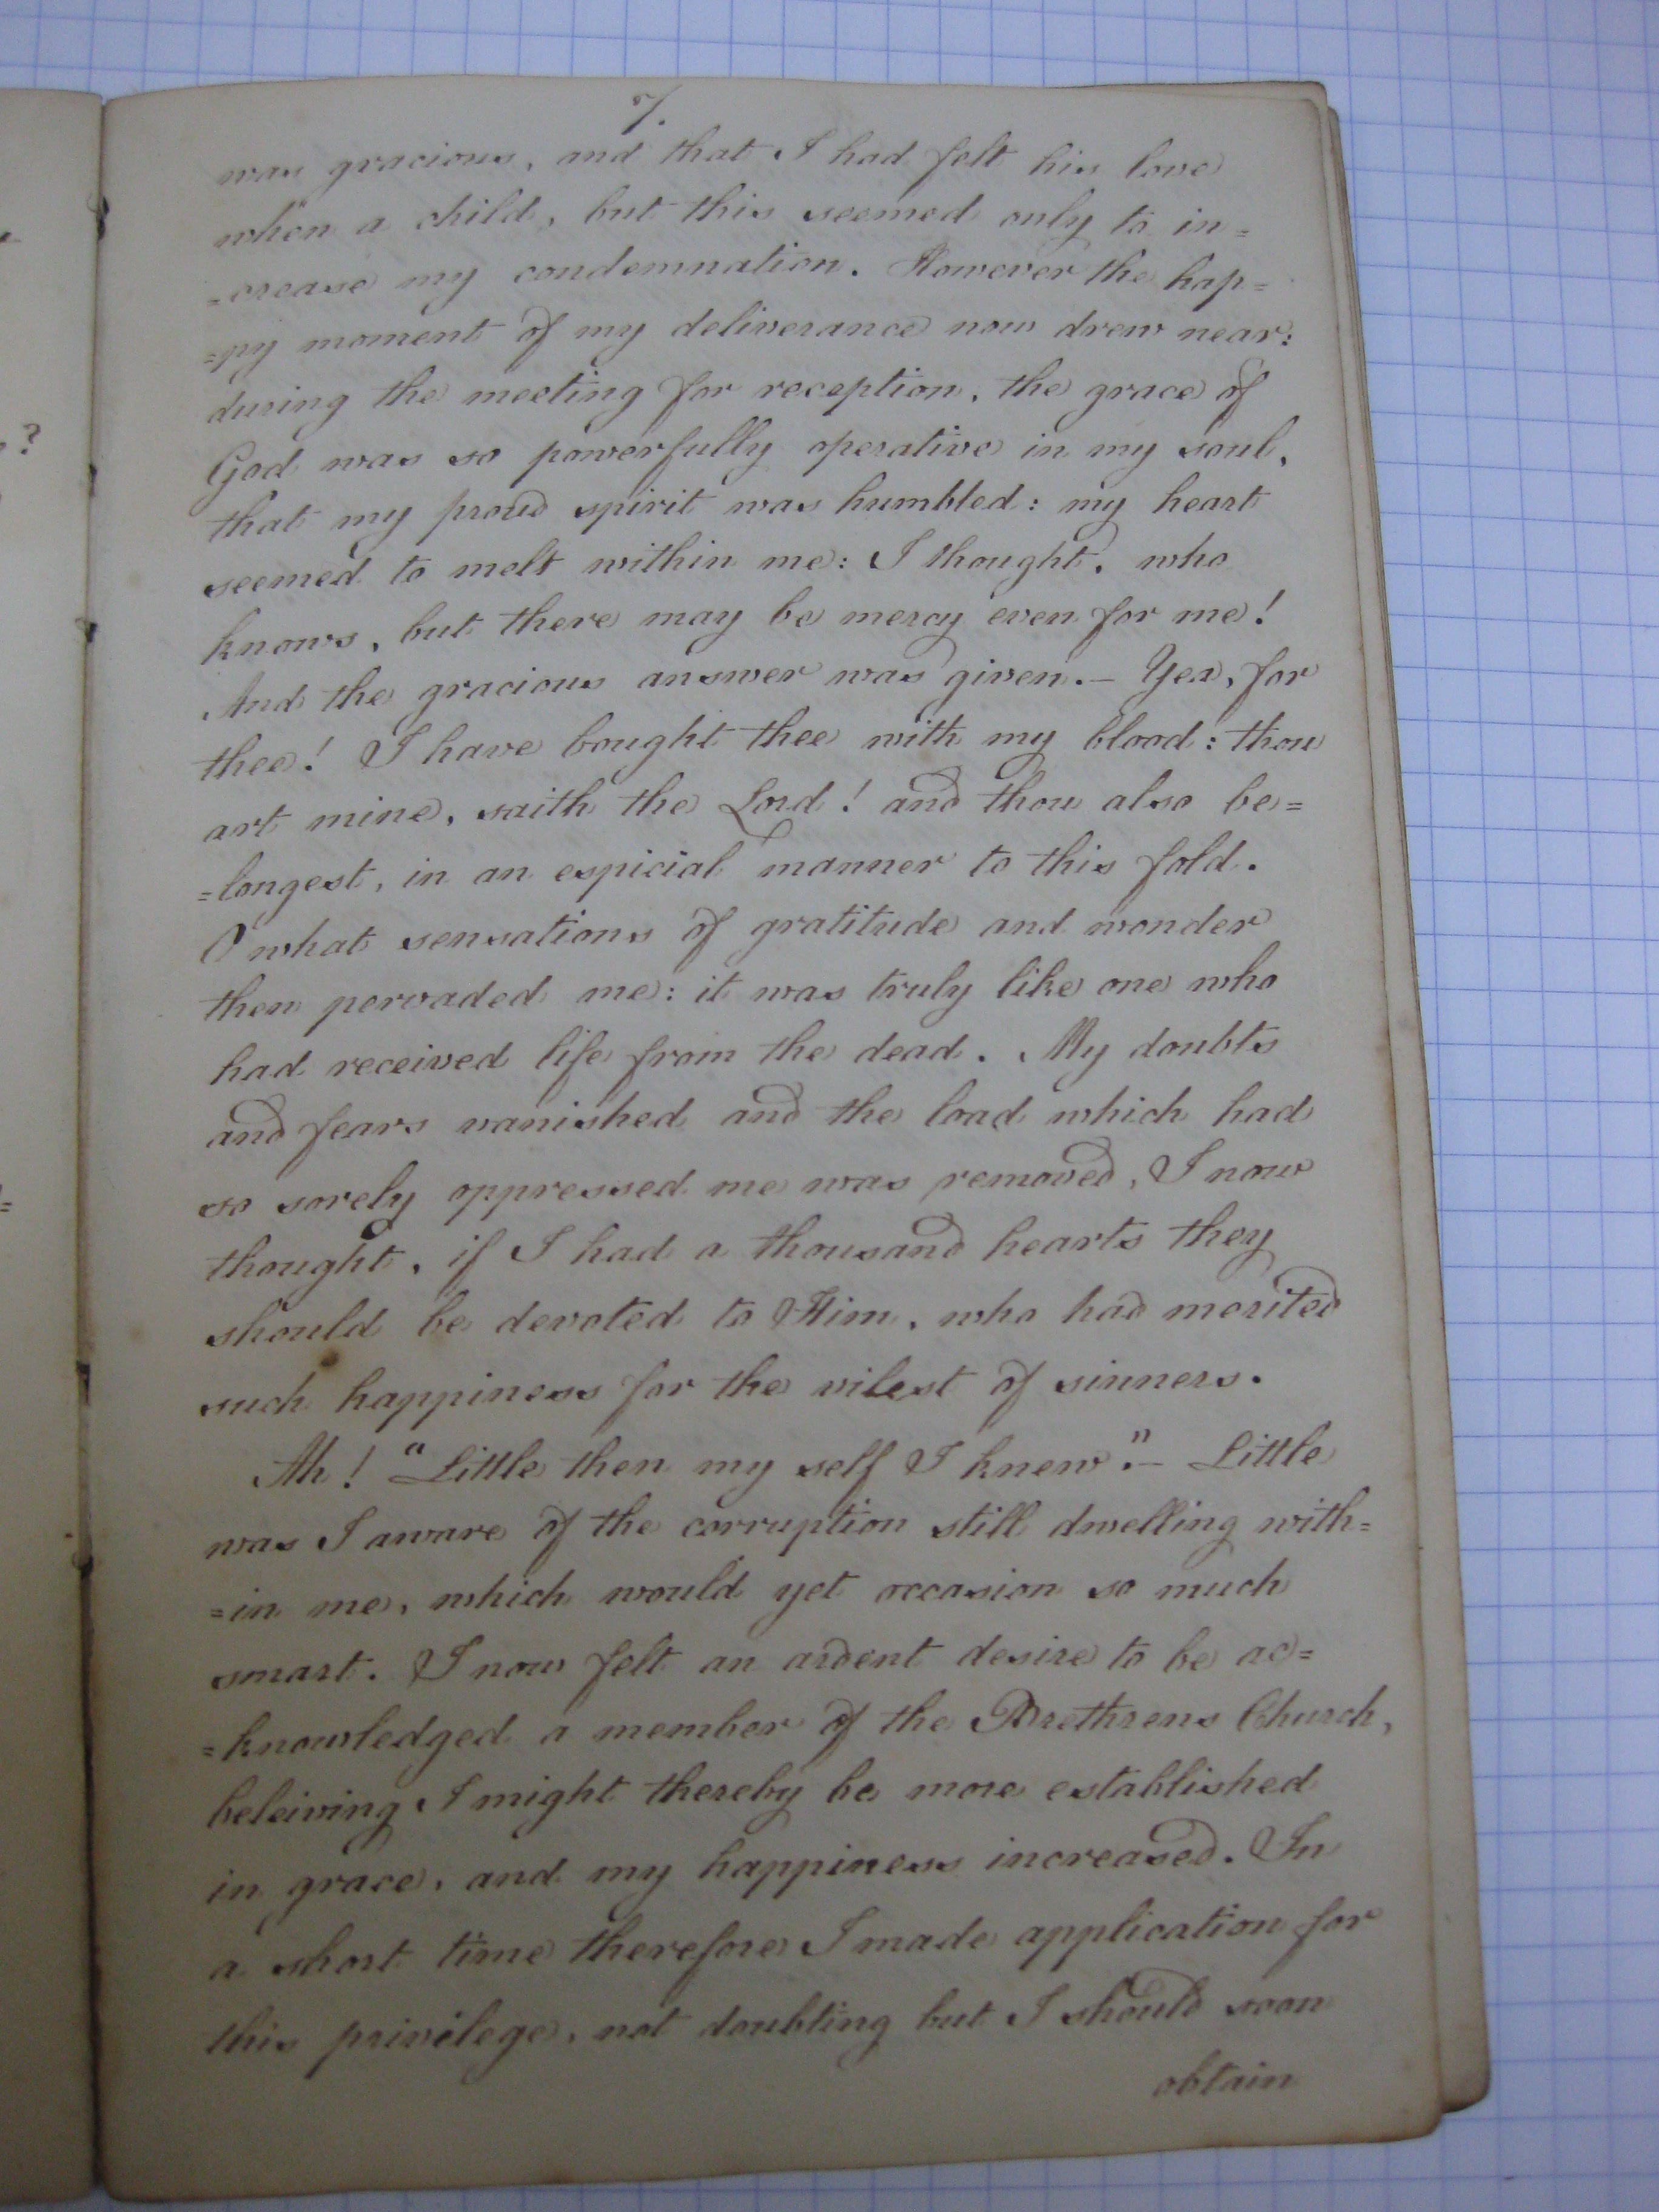 7.
was gracious, and that I had felt his love
when a child, but this seemed only to in=
=crease my condemnation. However the hap=
=py moment of my deliverance now drew near:
during the meeting for reception, the grace of
God was so powerfully operative in my soul,
that my proud spirit was humbled: my heart
seemed to melt within me: I thought, who
knows, but there may be mercy even for me!
And the gracious answer was given.– Yea, for
thee! I have bought thee with my blood: thou
art mine, saith the Lord! and thou also be=
=longest, in an espicial manner to this fold.
O what sensations of gratitude and wonder
then pervaded me: it was truly like one who
had received life from the dead. My doubts
and fears vanished and the load which had
so sorely oppressed me was removed, I now
thought, if I had a thousand hearts they
should be devoted to Him, who had merited
such happiness for the vilest of sinners.
Ah! "Little then my self I knew".– Little
was I aware of the corruption still dwelling with=
=in me, which would yet occasion so much
smart. I now felt an ardent desire to be ac=
=knowledged a member of the Brethrens Church,
beleiving I might thereby be more established
in grace, and my happiness increased. In
a short time therefore I made application for
this privilege, not doubting but I should soon
obtain